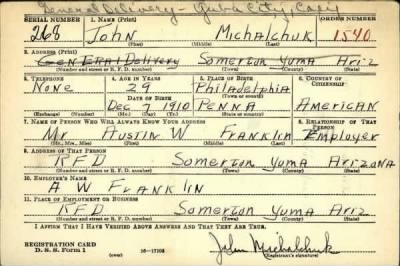 General Delivery - Yuba City, Calif
SERIAL NUMBER 1. NAME (Print) ORDER NUMBER
268 John Michalchuk 1540
(First) (Middle) (Last)
2. ADDRESS (Print)
General Delivery Somerton Yuma Ariz
(Number and street or R. F. D. number) (Town) (County) (State)
3. TELEPHONE 4. AGE IN YEARS 5. PLACE OF BIRTH 6. COUNTRY OF CITIZENSHIP
None 29 Philadelphia
DATE OF BIRTH (Town or county)
Dec 7 1910 Penna American
(Mo.) (Day) (Yr.) (State or country)
7. NAME OF PERSON WHO WILL ALWAYS KNOW YOUR ADDRESS 8. RELATIONSHIP OF THAT PERSON
Mr Austin W Franklin Employer
(Mr., Mrs., Miss) (First) (Middle) (Last)
9. ADDRESS OF THAT PERSON
RFD Somerton Yuma Arizona
(Number and street or R. F. D. number) (Town) (County) (State)
10. EMPLOYER'S NAME
A W Franklin
11. PLACE OF EMPLOYMENT OR BUSINESS
RFD Somerton Yuma Ariz
(Number and street or R. F. D. number) (Town) (County) (State)
I AFFIRM THAT I HAVE VERIFIED ABOVE ANSWERS AND THAT THEY ARE TRUE.
REGISTRATION CARD
D. S. S. Form 1 (over) John Michalchuk
(Registrant's signature)